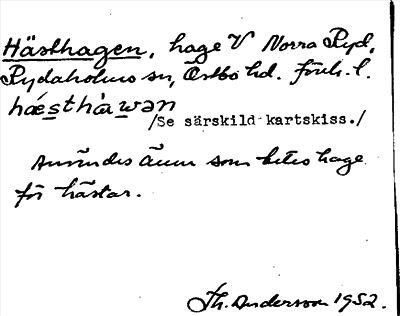 Hästhagen, hage V Norra Ryd,
Rydaholms sn, Östbo hd. förh. l.
hǽsthàwən
/Se särskild kartskiss./
Användes även som beteshage
för hästar.
Th. Anderson 1952.